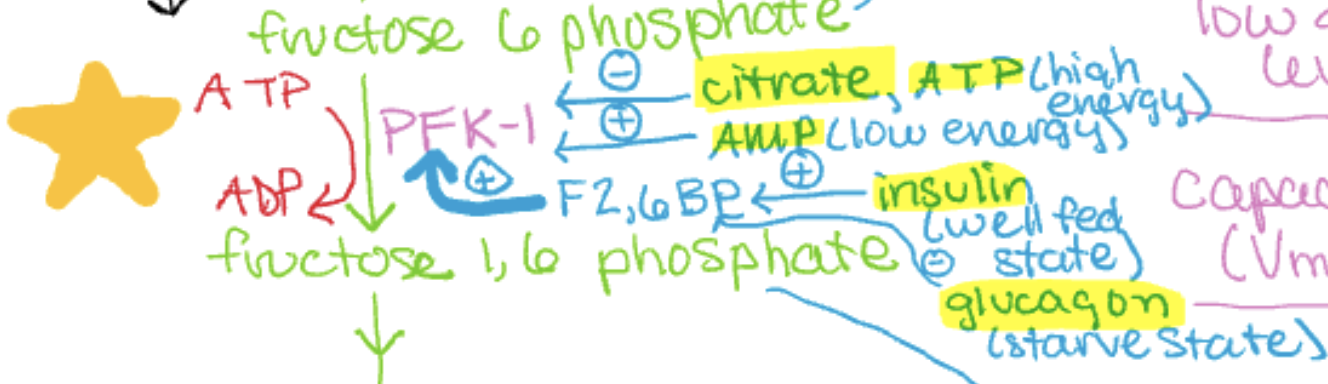 fructose 6 phosphate
low
ATP
citrate, ATP (high energy)
PFK-1
AMP (low energy)
ADP
F2,6BP
insulin
(well fed state)
fructose 1,6 phosphate
(Vm
glucagon
(starve state)
- 
+
+
+
-